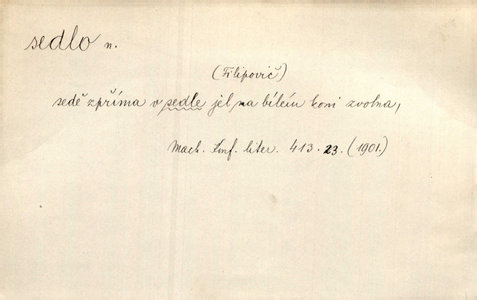 sedlo n.
(Filipovič)
sedě zpříma v sedle jel na bílém koni zvolna,
Mach. Konf. liter. 413. 23. (1901.)